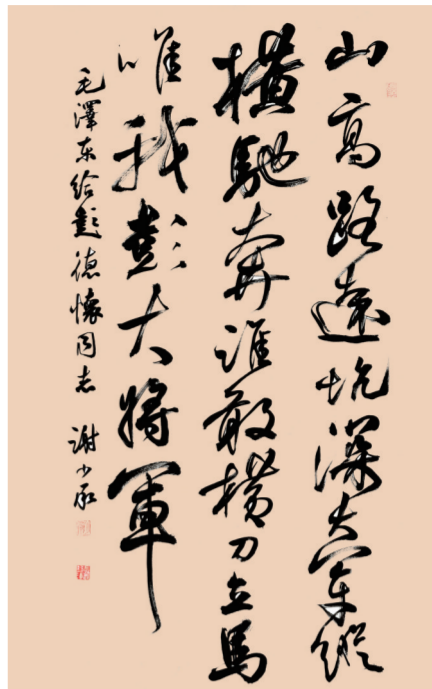 山高路遠坑深大軍縱
橫馳奔誰敢橫刀立馬
唯我彭大將軍
毛澤东给彭德懷同志 謝少承